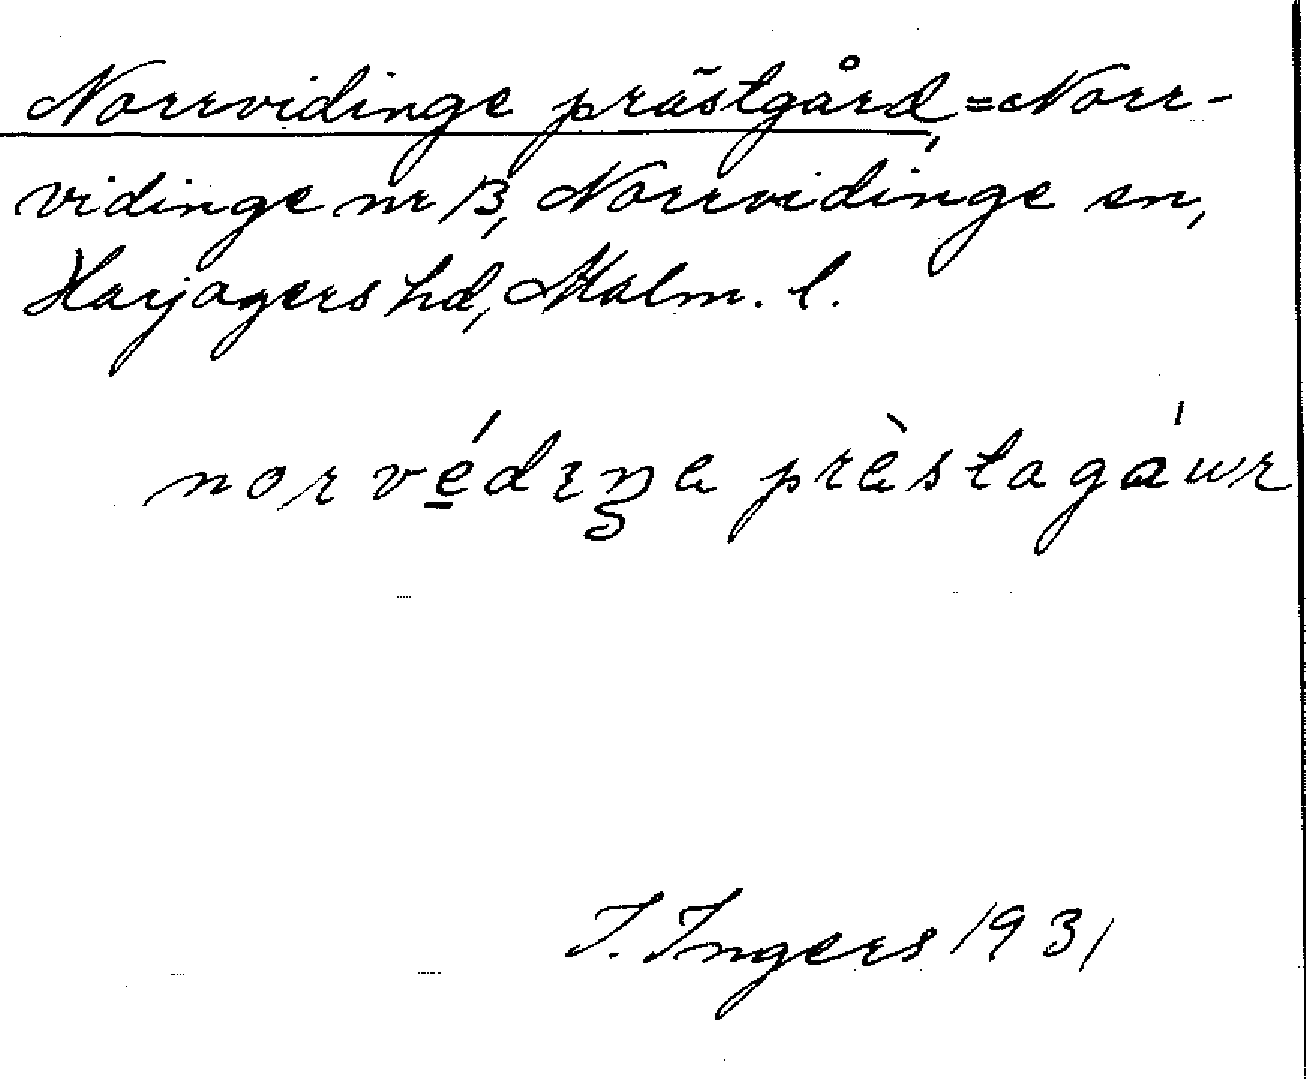 Norrvidinge prästgård, = Norr-
vidinge nr 13, Norrvidinge sn,
Harjagers hd, Malm. l.
norvédɪŋa prèstagáwr
I. Ingers 1931